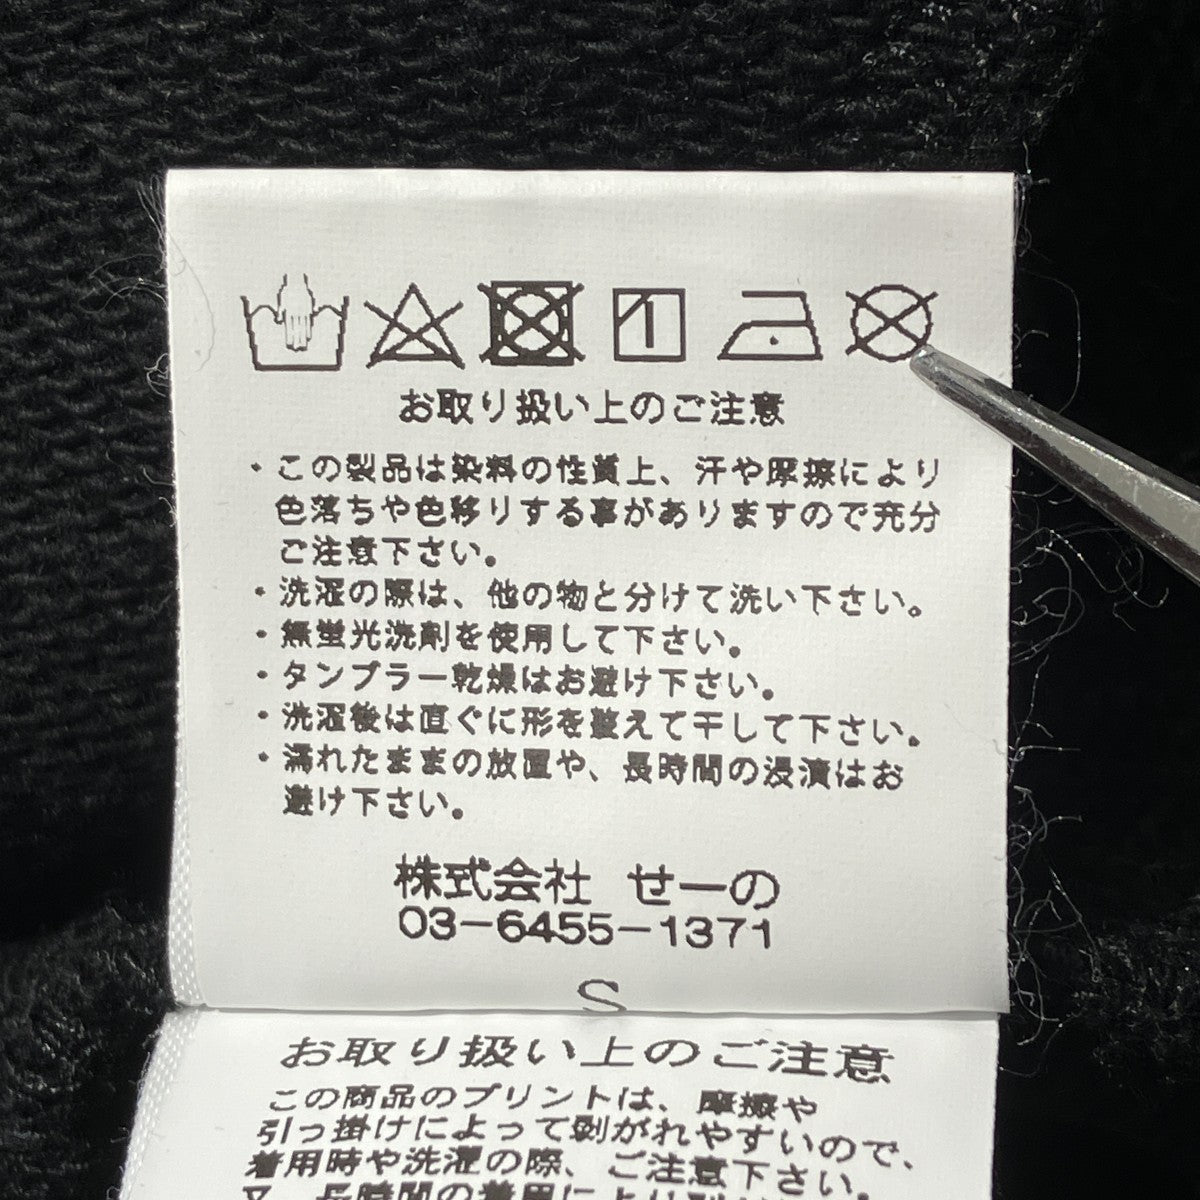 お取り扱い上のご注意
・この製品は染料の性質上、汗や摩擦により
色落ちや色移りする事がありますので充分
ご注意下さい。
・洗濯の際は、他の物と分けて洗い下さい。
・無蛍光洗剤を使用して下さい。
・タンブラー乾燥はお避け下さい。
・洗濯後は直ぐに形を整えて干して下さい。
・濡れたままの放置や、長時間の浸漬はお
避け下さい。
株式会社 せーの
03-6455-1371
S
お取り扱い上のご注意
この商品のプリントは、摩擦や
引っ掛けによって剥がれやすいので、
着用時や洗濯の際、ご注意下さい。
又、長時間の着用により